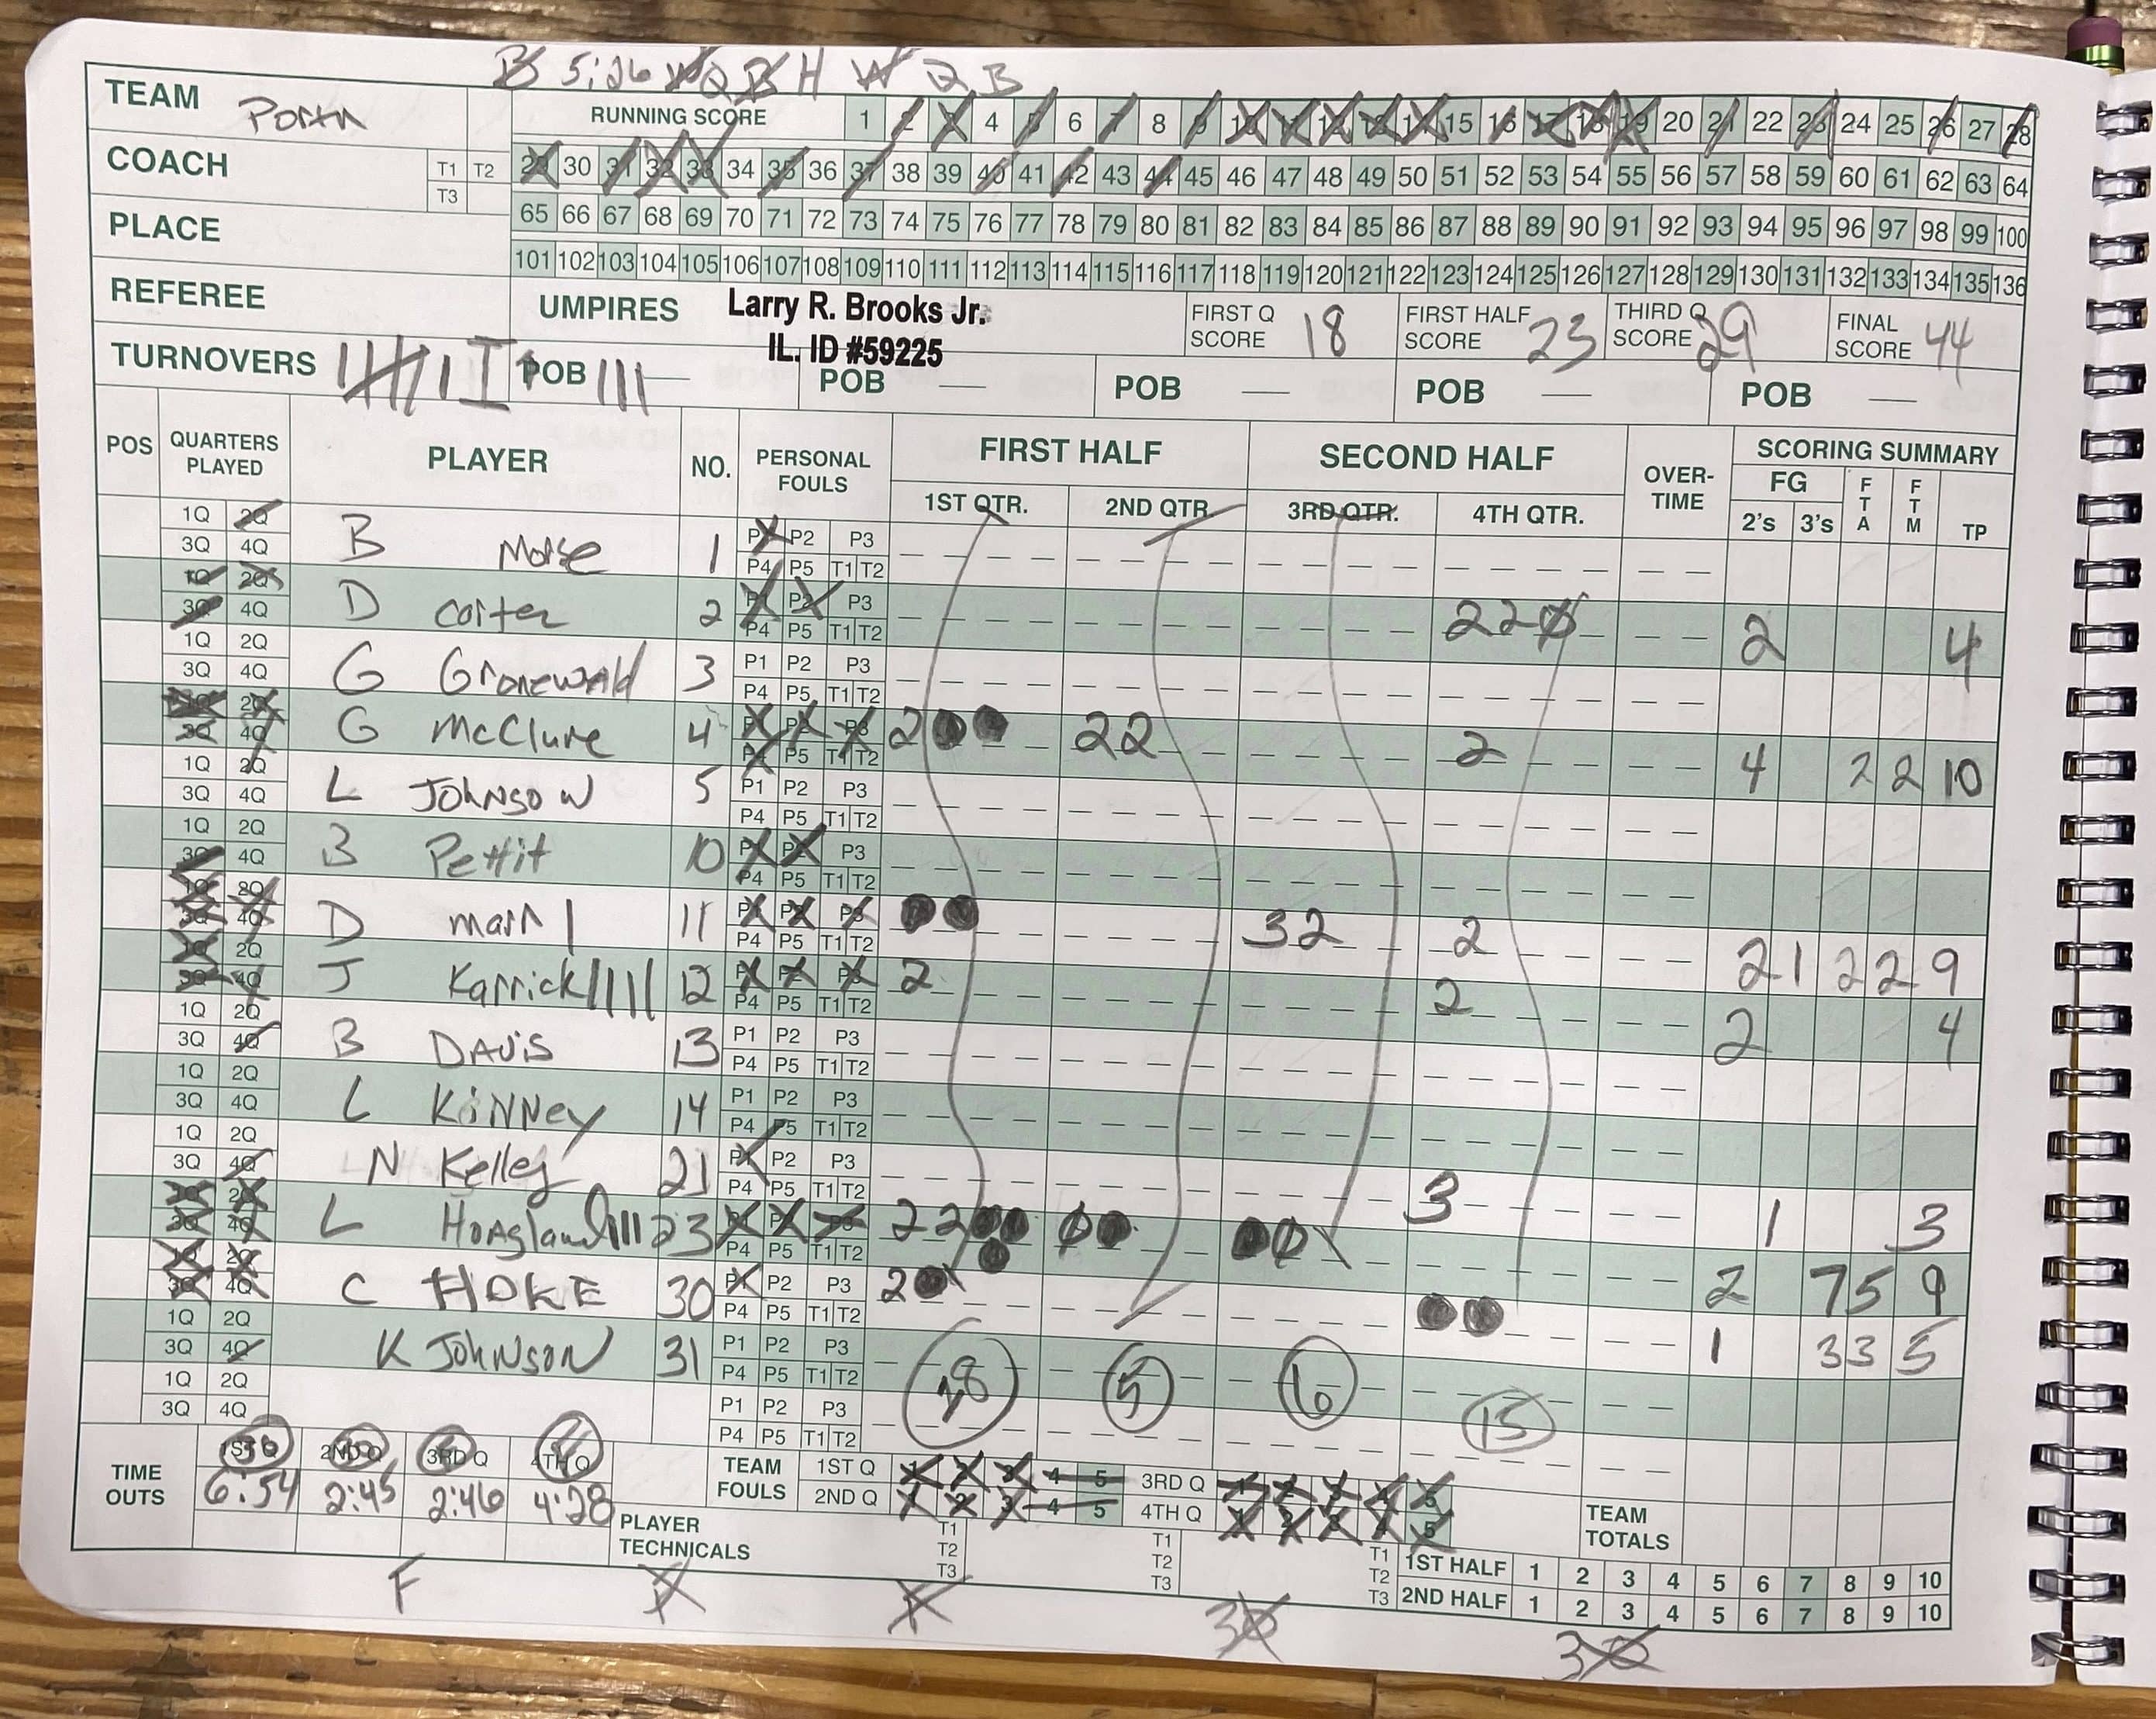 B 5:26 Q B H W Q B
TEAM Porta RUNNING SCORE 1 2 3 4 5 6 7 8 9 10 11 12 13 14 15 16 17 18 19 20 21 22 23 24 25 26 27 28
COACH T1 T2 29 30 31 32 33 34 35 36 37 38 39 40 41 42 43 44 45 46 47 48 49 50 51 52 53 54 55 56 57 58 59 60 61 62 63 64
T3
PLACE 65 66 67 68 69 70 71 72 73 74 75 76 77 78 79 80 81 82 83 84 85 86 87 88 89 90 91 92 93 94 95 96 97 98 99 100
101 102 103 104 105 106 107 108 109 110 111 112 113 114 115 116 117 118 119 120 121 122 123 124 125 126 127 128 129 130 131 132 133 134 135 136
REFEREE UMPIRES Larry R. Brooks Jr. FIRST Q SCORE 18 FIRST HALF SCORE 23 THIRD Q SCORE 29 FINAL SCORE 44
IL. ID #59225
TURNOVERS POB POB POB POB POB
POS QUARTERS PLAYED PLAYER NO. PERSONAL FOULS FIRST HALF SECOND HALF OVER-TIME SCORING SUMMARY
1ST QTR. 2ND QTR. 3RD QTR. 4TH QTR. FG 2's 3's FTA FTM TP
1Q 2Q P1 P2 P3
3Q 4Q B Morse 1 P4 P5 T1 T2
1Q 2Q P1 P2 P3
3Q 4Q D Carter 2 P4 P5 T1 T2 2 2 0 2 4
1Q 2Q P1 P2 P3
3Q 4Q G Gronewald 3 P4 P5 T1 T2
1Q 2Q P1 P2 P3
3Q 4Q G McClure 4 P4 P5 T1 T2 2 2 2 2 4 2 2 10
1Q 2Q P1 P2 P3
3Q 4Q L Johnson 5 P4 P5 T1 T2
1Q 2Q P1 P2 P3
3Q 4Q B Pettit 10 P4 P5 T1 T2
1Q 2Q P1 P2 P3
3Q 4Q D Marr 11 P4 P5 T1 T2 3 2 2 2 1 2 2 9
1Q 2Q P1 P2 P3
3Q 4Q J Karrick 12 P4 P5 T1 T2 2 2 2 4
1Q 2Q P1 P2 P3
3Q 4Q B Davis 13 P4 P5 T1 T2
1Q 2Q P1 P2 P3
3Q 4Q L Kinney 14 P4 P5 T1 T2
1Q 2Q P1 P2 P3
3Q 4Q N Kelley 21 P4 P5 T1 T2 3 1 3
1Q 2Q P1 P2 P3
3Q 4Q L Hoagland 23 P4 P5 T1 T2 2 2 2 7 5 9
1Q 2Q P1 P2 P3
3Q 4Q C HOKE 30 P4 P5 T1 T2 2 1 3 3 5
1Q 2Q P1 P2 P3
3Q 4Q K Johnson 31 P4 P5 T1 T2 18 5 6 15
1Q 2Q P1 P2 P3
3Q 4Q P4 P5 T1 T2
TIME OUTS 1ST Q 2ND Q 3RD Q 4TH Q TEAM FOULS 1ST Q 1 2 3 4 5 3RD Q 1 2 3 4 5
6:54 2:45 2:46 4:28 2ND Q 1 2 3 4 5 4TH Q 1 2 3 4 5 TEAM TOTALS
PLAYER TECHNICALS T1 T2 T3 T1 T2 T3 T1 T2 T3 1ST HALF 1 2 3 4 5 6 7 8 9 10
2ND HALF 1 2 3 4 5 6 7 8 9 10
F 30 30